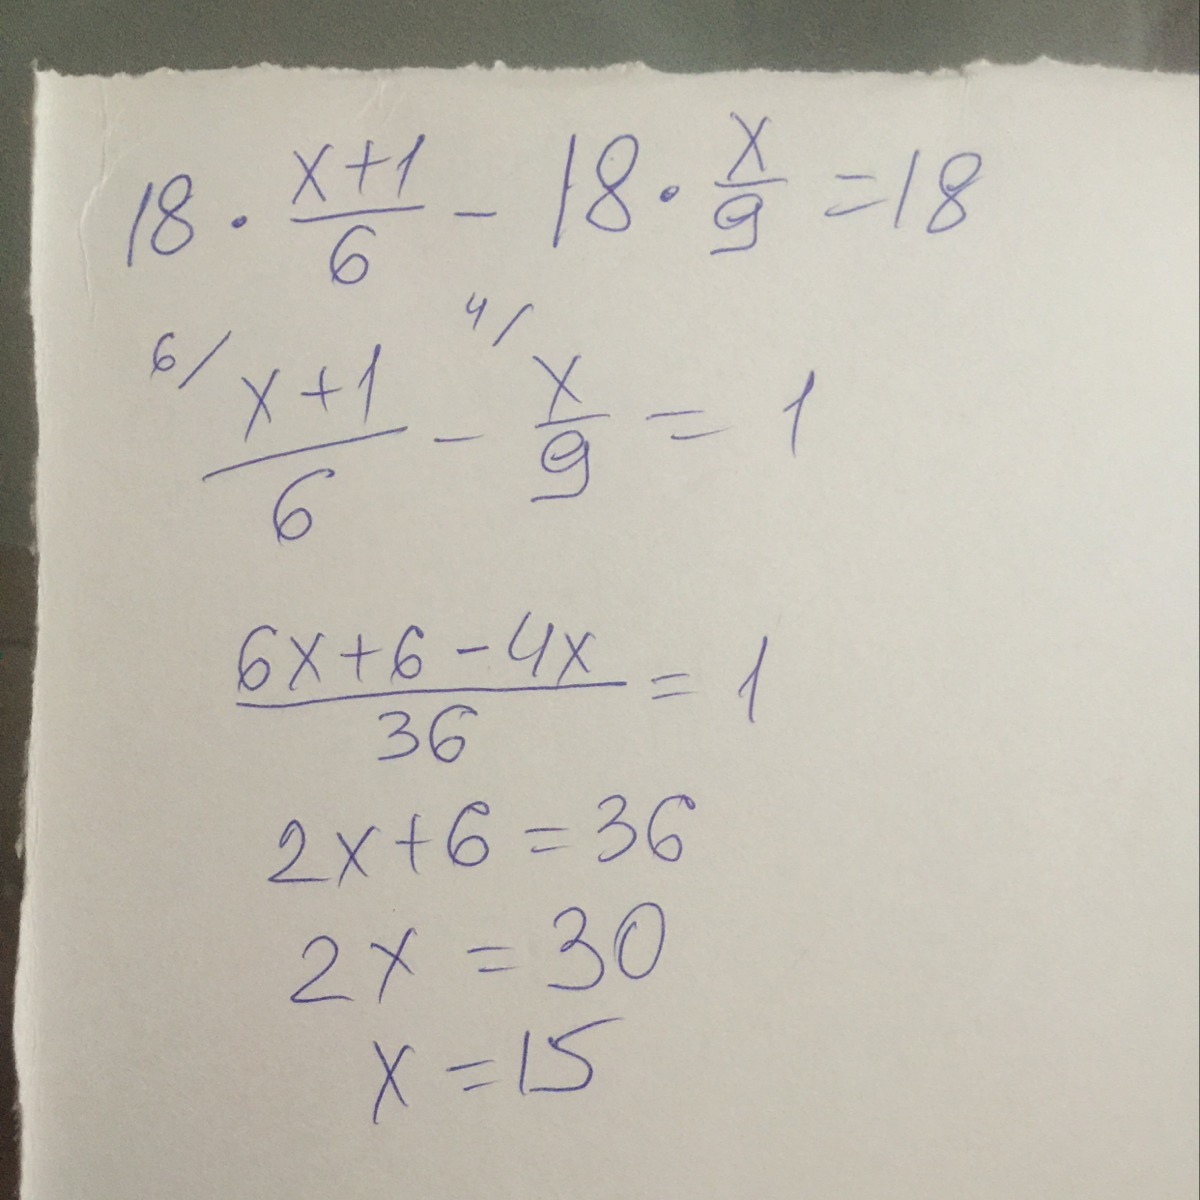 18 · (x+1)/6 - 18 · x/9 = 18
6/ (x+1)/6 - 4/ x/9 = 1
(6x+6-4x)/36 = 1
2x+6=36
2x = 30
x = 15